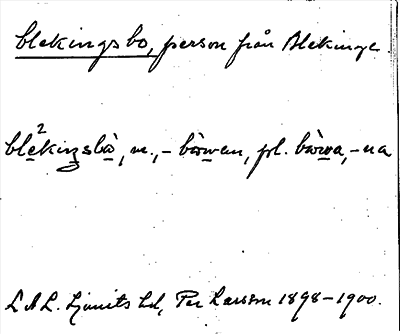 blekingsbo, person från Blekinge
ble²kingsbò, m., -bòwan, pl. bòwa, -na
LAL. Ljunits hd, Per Larson 1898-1900.